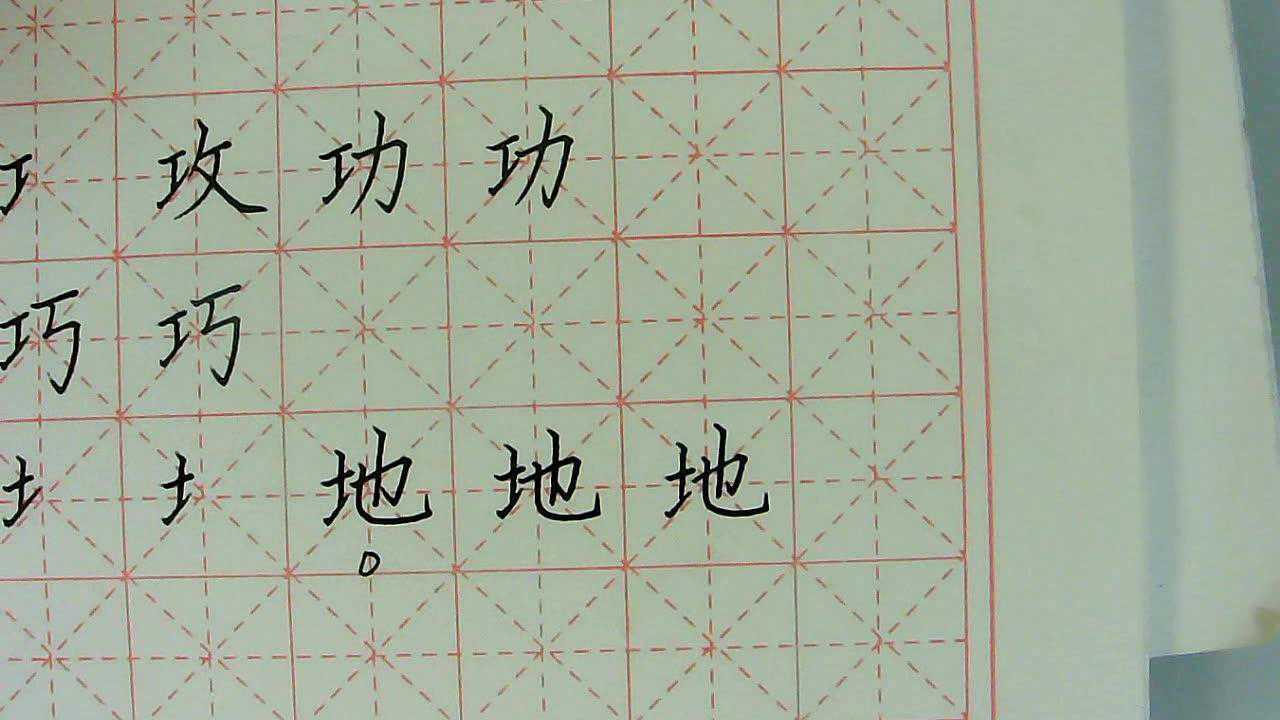 攻功功
巧巧
地地地